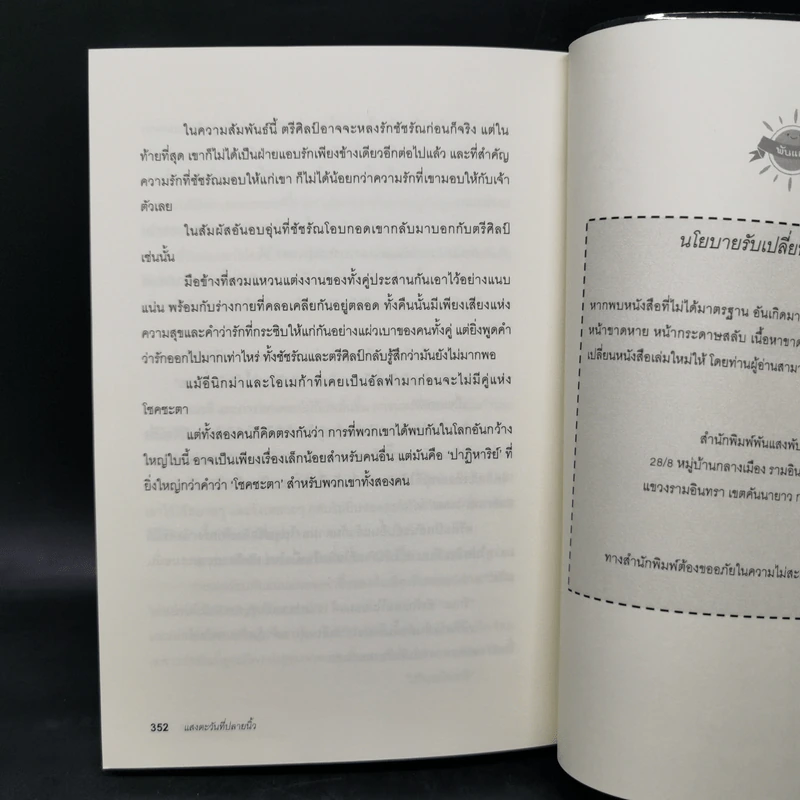 ในความสัมพันธ์นี้ ตรีศิลป์อาจจะหลงรักชัชรัณก่อนก็จริง แต่ใน
ท้ายที่สุด เขาก็ไม่ได้เป็นฝ่ายแอบรักเพียงข้างเดียวอีกต่อไปแล้ว และที่สำคัญ
ความรักที่ชัชรัณมอบให้แก่เขา ก็ไม่ได้น้อยกว่าความรักที่เขามอบให้กับเจ้า
ตัวเลย
ในสัมผัสอันอบอุ่นที่ชัชรัณโอบกอดเขากลับมาบอกกับตรีศิลป์
เช่นนั้น
มือข้างที่สวมแหวนแต่งงานของทั้งคู่ประสานกันเอาไว้อย่างแนบ
แน่น พร้อมกับร่างกายที่คลอเคลียกันอยู่ตลอด ทั้งคืนนั้นมีเพียงเสียงแห่ง
ความสุขและคำว่ารักที่กระซิบให้แก่กันอย่างแผ่วเบาของคนทั้งคู่ แต่ยิ่งพูดคำ
ว่ารักออกไปมากเท่าไหร่ ทั้งชัชรัณและตรีศิลป์กลับรู้สึกว่ามันยังไม่มากพอ
แม้อีนิกม่าและโอเมก้าที่เคยเป็นอัลฟ่ามาก่อนจะไม่มีคู่แห่ง
โชคชะตา
แต่ทั้งสองคนก็คิดตรงกันว่า การที่พวกเขาได้พบกันในโลกอันกว้าง
ใหญ่ใบนี้ อาจเป็นเพียงเรื่องเล็กน้อยสำหรับคนอื่น แต่มันคือ ‘ปาฏิหาริย์’ ที่
ยิ่งใหญ่กว่าคำว่า ‘โชคชะตา’ สำหรับพวกเขาทั้งสองคน
352 แสงตะวันที่ปลายนิ้ว
นโยบายรับเปลี่ย
หากพบหนังสือที่ไม่ได้มาตรฐาน อันเกิดมา
หน้าขาดหาย หน้ากระดาษสลับ เนื้อหาขาด
เปลี่ยนหนังสือเล่มใหม่ให้ โดยท่านผู้อ่านสามา
สำนักพิมพ์พันแสงพับ
28/8 หมู่บ้านกลางเมือง รามอิน
แขวงรามอินทรา เขตคันนายาว ก
ทางสำนักพิมพ์ต้องขออภัยในความไม่สะ